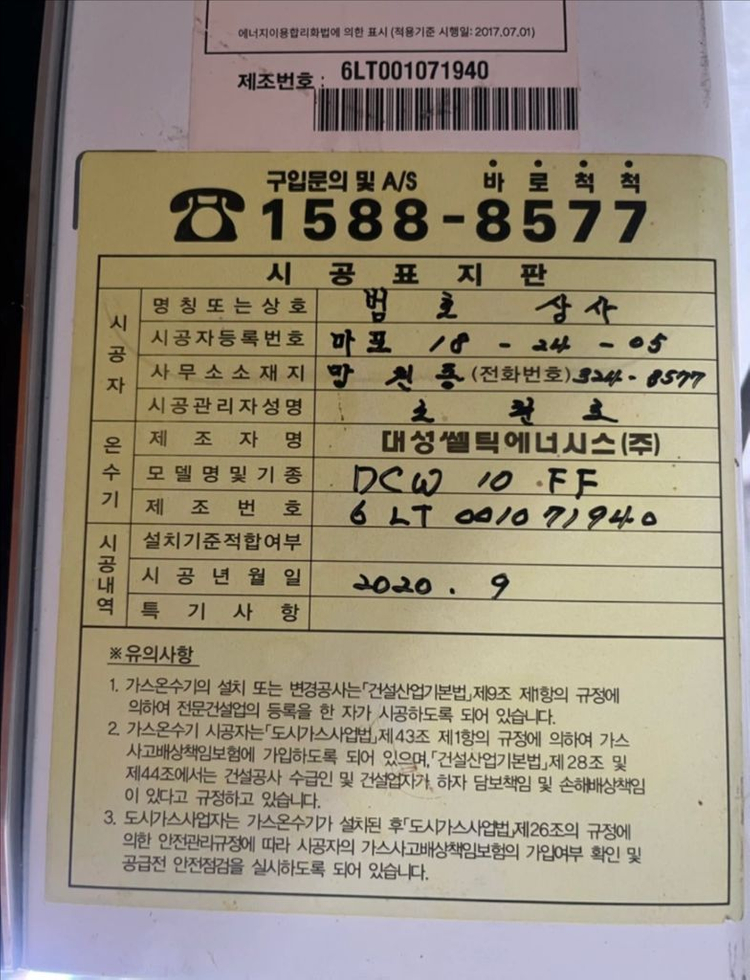 에너지이용합리화법에 의한 표시 (적용기준 시행일: 2017.07.01)
제조번호 : 6LT001071940
구입문의 및 A/S 바로척척
1588-8577
시공표지판
시공자
명칭또는상호 범호 상사
시공자등록번호 마포 18 - 24 - 05
사무소소재지 망원동 (전화번호) 324-8577
시공관리자성명 호
온수기
제조자명 대성쎌틱에너시스(주)
모델명및기종 DCW 10 FF
제조번호 6LT 001071940
시공내역
설치기준적합여부
시공년월일 2020. 9
특기사항
※유의사항
1. 가스온수기의 설치 또는 변경공사는「건설산업기본법」제9조 제1항의 규정에
의하여 전문건설업의 등록을 한 자가 시공하도록 되어 있습니다.
2. 가스온수기 시공자는「도시가스사업법」제43조 제1항의 규정에 의하여 가스
사고배상책임보험에 가입하도록 되어 있으며,「건설산업기본법」제28조 및
제44조에서는 건설공사 수급인 및 건설업자가 하자 담보책임 및 손해배상책임
이 있다고 규정하고 있습니다.
3. 도시가스사업자는 가스온수기가 설치된 후「도시가스사업법」제26조의 규정에
의한 안전관리규정에 따라 시공자의 가스사고배상책임보험의 가입여부 확인 및
공급전 안전점검을 실시하도록 되어 있습니다.